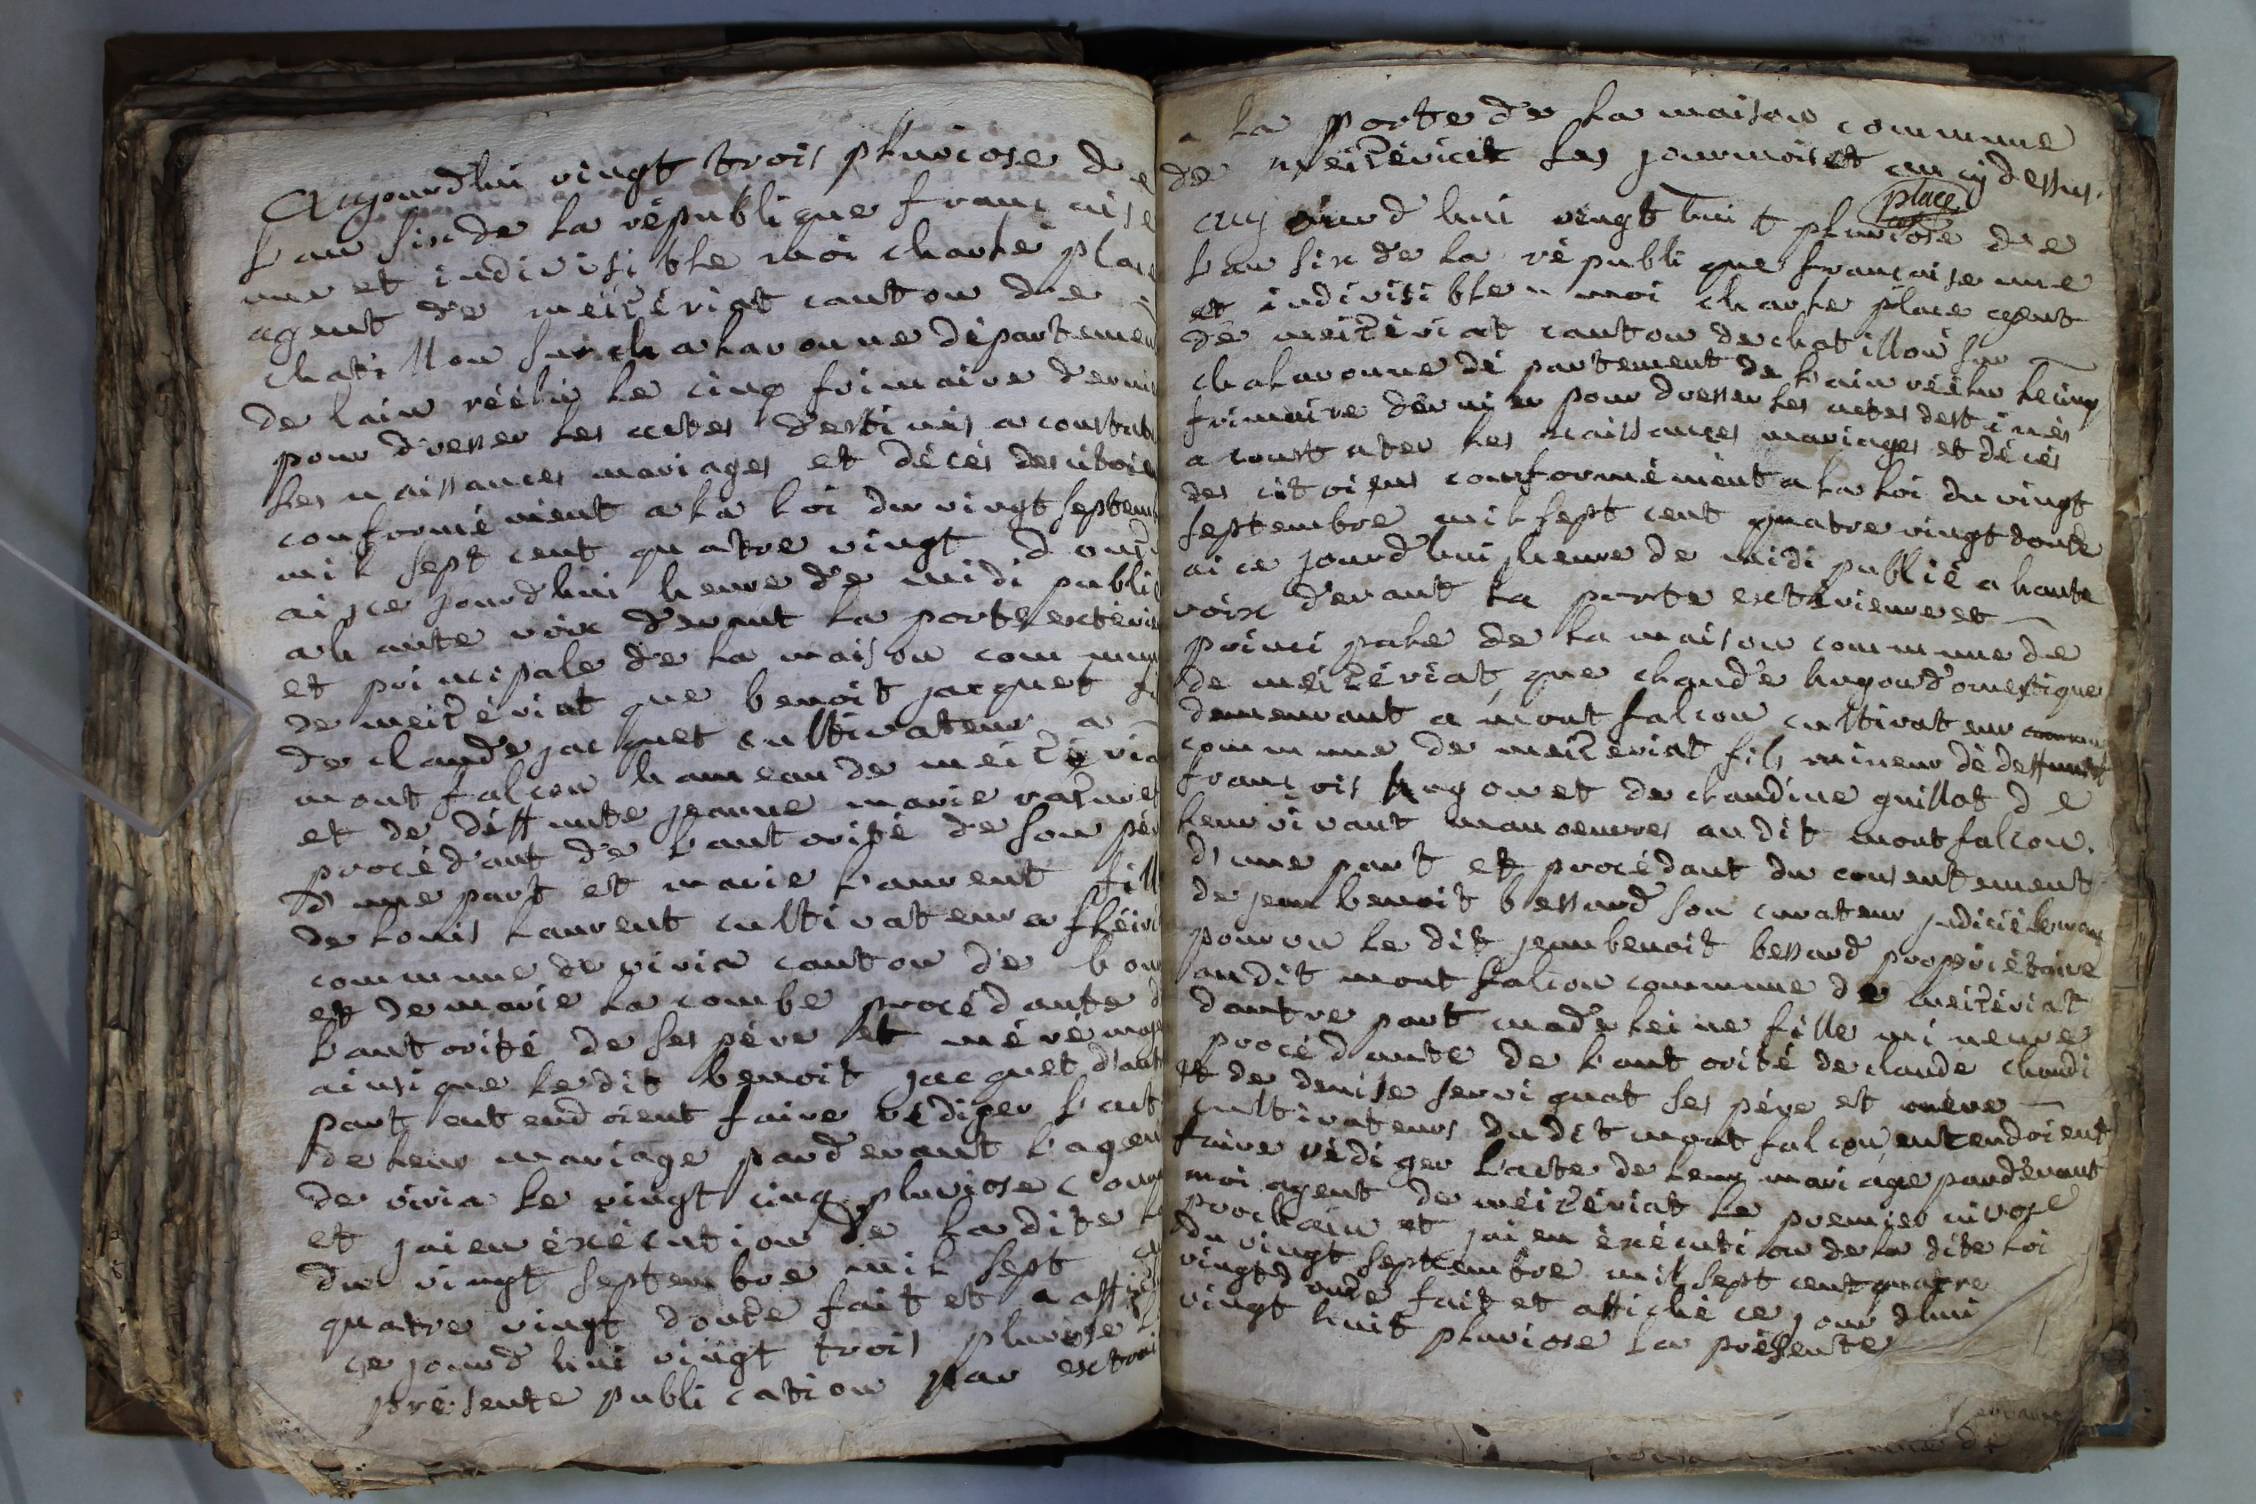 Aujourdhui vingt trois pluviose de
l'an six de la république francaise
une et indivisible moi charle place
agent de meizériat canton de
chatillon sur chalaronne départemen
de lain réélu le cinq frimaire derni
pour dresser les actes destinés a constat
les naissances mariages et décés des citoie
conformément a la loi du vingt septem
mil sept cent quatre vingt douz
ai ce jourdhui heure de midi publié
a haute voix devant la porte extérie
et principale de la maison commun
de meizériat que benoit jacquet
de claude jacquet cultivateur a
mont falcon hameau de meizéria
et de déffunte jeanne marie
procédant de l'autorité de son pér
d'une part et marie laurent fill
de louis laurent cultivateur a
commune de viria canton de bour
et de marie la combe procédante d
l'autorité de ses pére et mére
ainsi que ledit benoit jacquet d'aut
part entendoient faire rédiger l'act
de leur mariage pardevant l'agen
de viria le vingt cinq pluviose
et jai en éxécution de la dite
du vingt septembre mil sept
quatre vingt douze fait et affi
ce jourd hui vingt trois pluviose
présente publication par extrai
a la porte de la maison commune
de meizériat les jour mois et an cy dessus.
place
auj ourd hui vingt hui t pluviose de
l'an six de la république francaise une
et indivisible moi charle place agent
de meizériat canton de chatillon sur
chalaronne département de l'ain réélu le cinq
frimaire dernier pour dresser les actes destinés
a constater les naissances mariages et décés
des citoiens conformément a la loi du vingt
septembre mil sept cent quatre vingt douze
ai ce jourdhui heure de midi publié a haute
voix devant la porte extérieure et
princi pale de la maison commune de
de meizériat, que claude hugon domestique
demeurant a mont falcon cultivateur
commune de meizeriat fils mineur de deffunts
francois hugon et de claudine guillot de
leur vivant manoeuvres au dit mont falcon.
d'une part et procédant du consentement
de jean benoit bessard son curateur
pourvu le dit jean benoit bessard propriétaire
au dit mont falcon commune de meizériat
dautre part madeleine fille mineure
procédante de l'autorité de claude chandi
et de denise servignat ses pére et mére
cultivateurs du dit mont falcon, entendoient
faire rédiger l'acte de leur mariage pardevant
moi agent de méizériat le premier nivose
prochain et jai en éxécution de la dite loi
du vingt septembre mil sept cent quatre
vingt douze fait et affiché ce jour dhui
vingt huit pluviose la présente